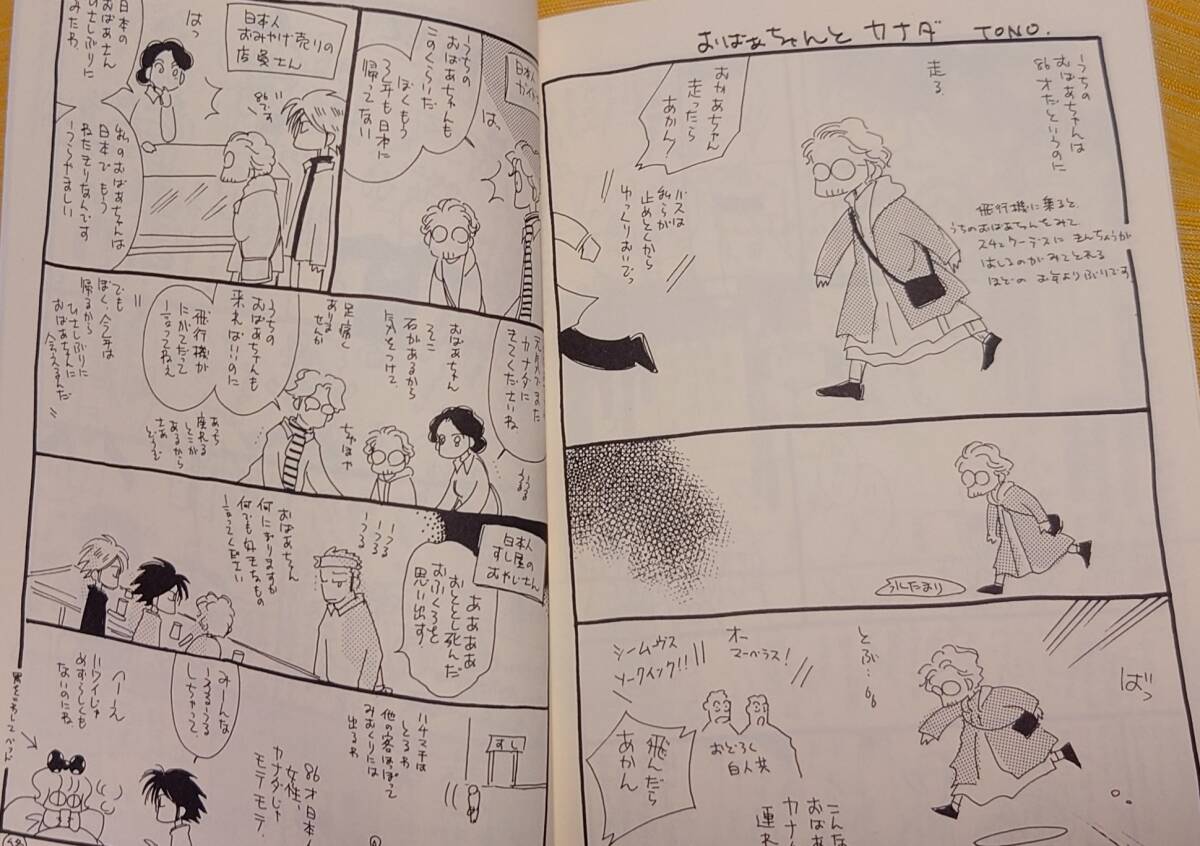 おばあちゃんと カナダ TONO.
うちの
おばあちゃんは
86才だというのに
走る
飛行機に乗ると
うちのおばあちゃんをみて
スチュワーデスに きんちょうが
はしるのがみてとれる
ほどの お年よりぶりです
おかあちゃん
走ったら
あかん!
バスは
私らが
止めとくから
ゆっくりおいでっ
水たまり
ばっ
とぶ…
オー
マーベラス!
シームヴス
ソークイック!!
おどろく
白人共
飛んだら
あかん
こんな
おばあ
カナ
連れ
日本人
ガイド
は、
うちの
おばあちゃんも
このくらいだ
ぼくもう
3年も日本に
帰ってない
日本人
おみやげ売りの
店員さん
はっ
86です
日本の
おばあさん
ひさしぶりに
みたわ
私のおばあちゃんは
日本でもう
ねたきりなんです
うらやましい
カナダに
きてくださいね
うるうる
おばあちゃん
そこ
石があるから
気をつけて
足痛く
ありま
せんか
うちの
おばあちゃんも
来ればいいのに
飛行機が
にがてだって
言ってねえ
でも
ぼく、今年は
帰るから
ひさしぶりに
おばあちゃんに
会えるんだ
ちやほや
あっち
座れる
とこが
あるから
さあ
どうぞ
日本人
すし屋の
おやじさん
ああああ
おととし死んだ
おふくろを
思い出す
うるうる
おばあちゃん
何にしますか
何でも好きなもの
言ってください
すし
ハチマチは
とるわ
他の客ほっぽって
みおくりには
出るわ
86才日本人
女性、
カナダじゃ
モテモテ
みーんな
うるうる
しちゃって
へーえ
ハワイじゃ
めずらしくも
ないのにね